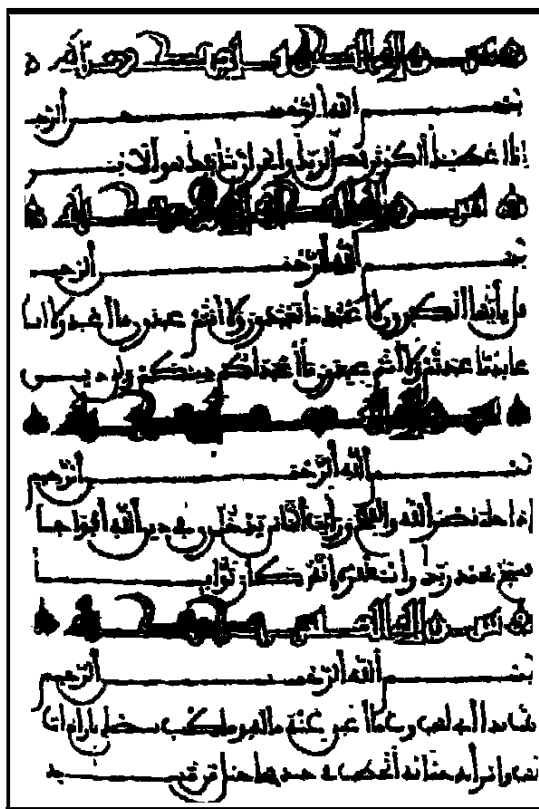 بسم الله الرحمن الرحيم
إنا أعطينك الكوثر فصل لربك وانحر إن شانئك هو الأبتر
بسم الله الرحمن الرحيم
قل يأيها الكفرون لا أعبد ما تعبدون ولا أنتم عبدون ما أعبد ولا أنا
عابد ما عبدتم ولا أنتم عبدون ما أعبد لكم دينكم ولي دين
بسم الله الرحمن الرحيم
إذا جاء نصر الله والفتح ورأيت الناس يدخلون في دين الله أفواجا
فسبح بحمد ربك واستغفره إنه كان توابا
بسم الله الرحمن الرحيم
تبت يدا أبي لهب وتب ما أغنى عنه ماله وما كسب سيصلى نارا ذات
لهب وامرأته حمالة الحطب في جيدها حبل من مسد